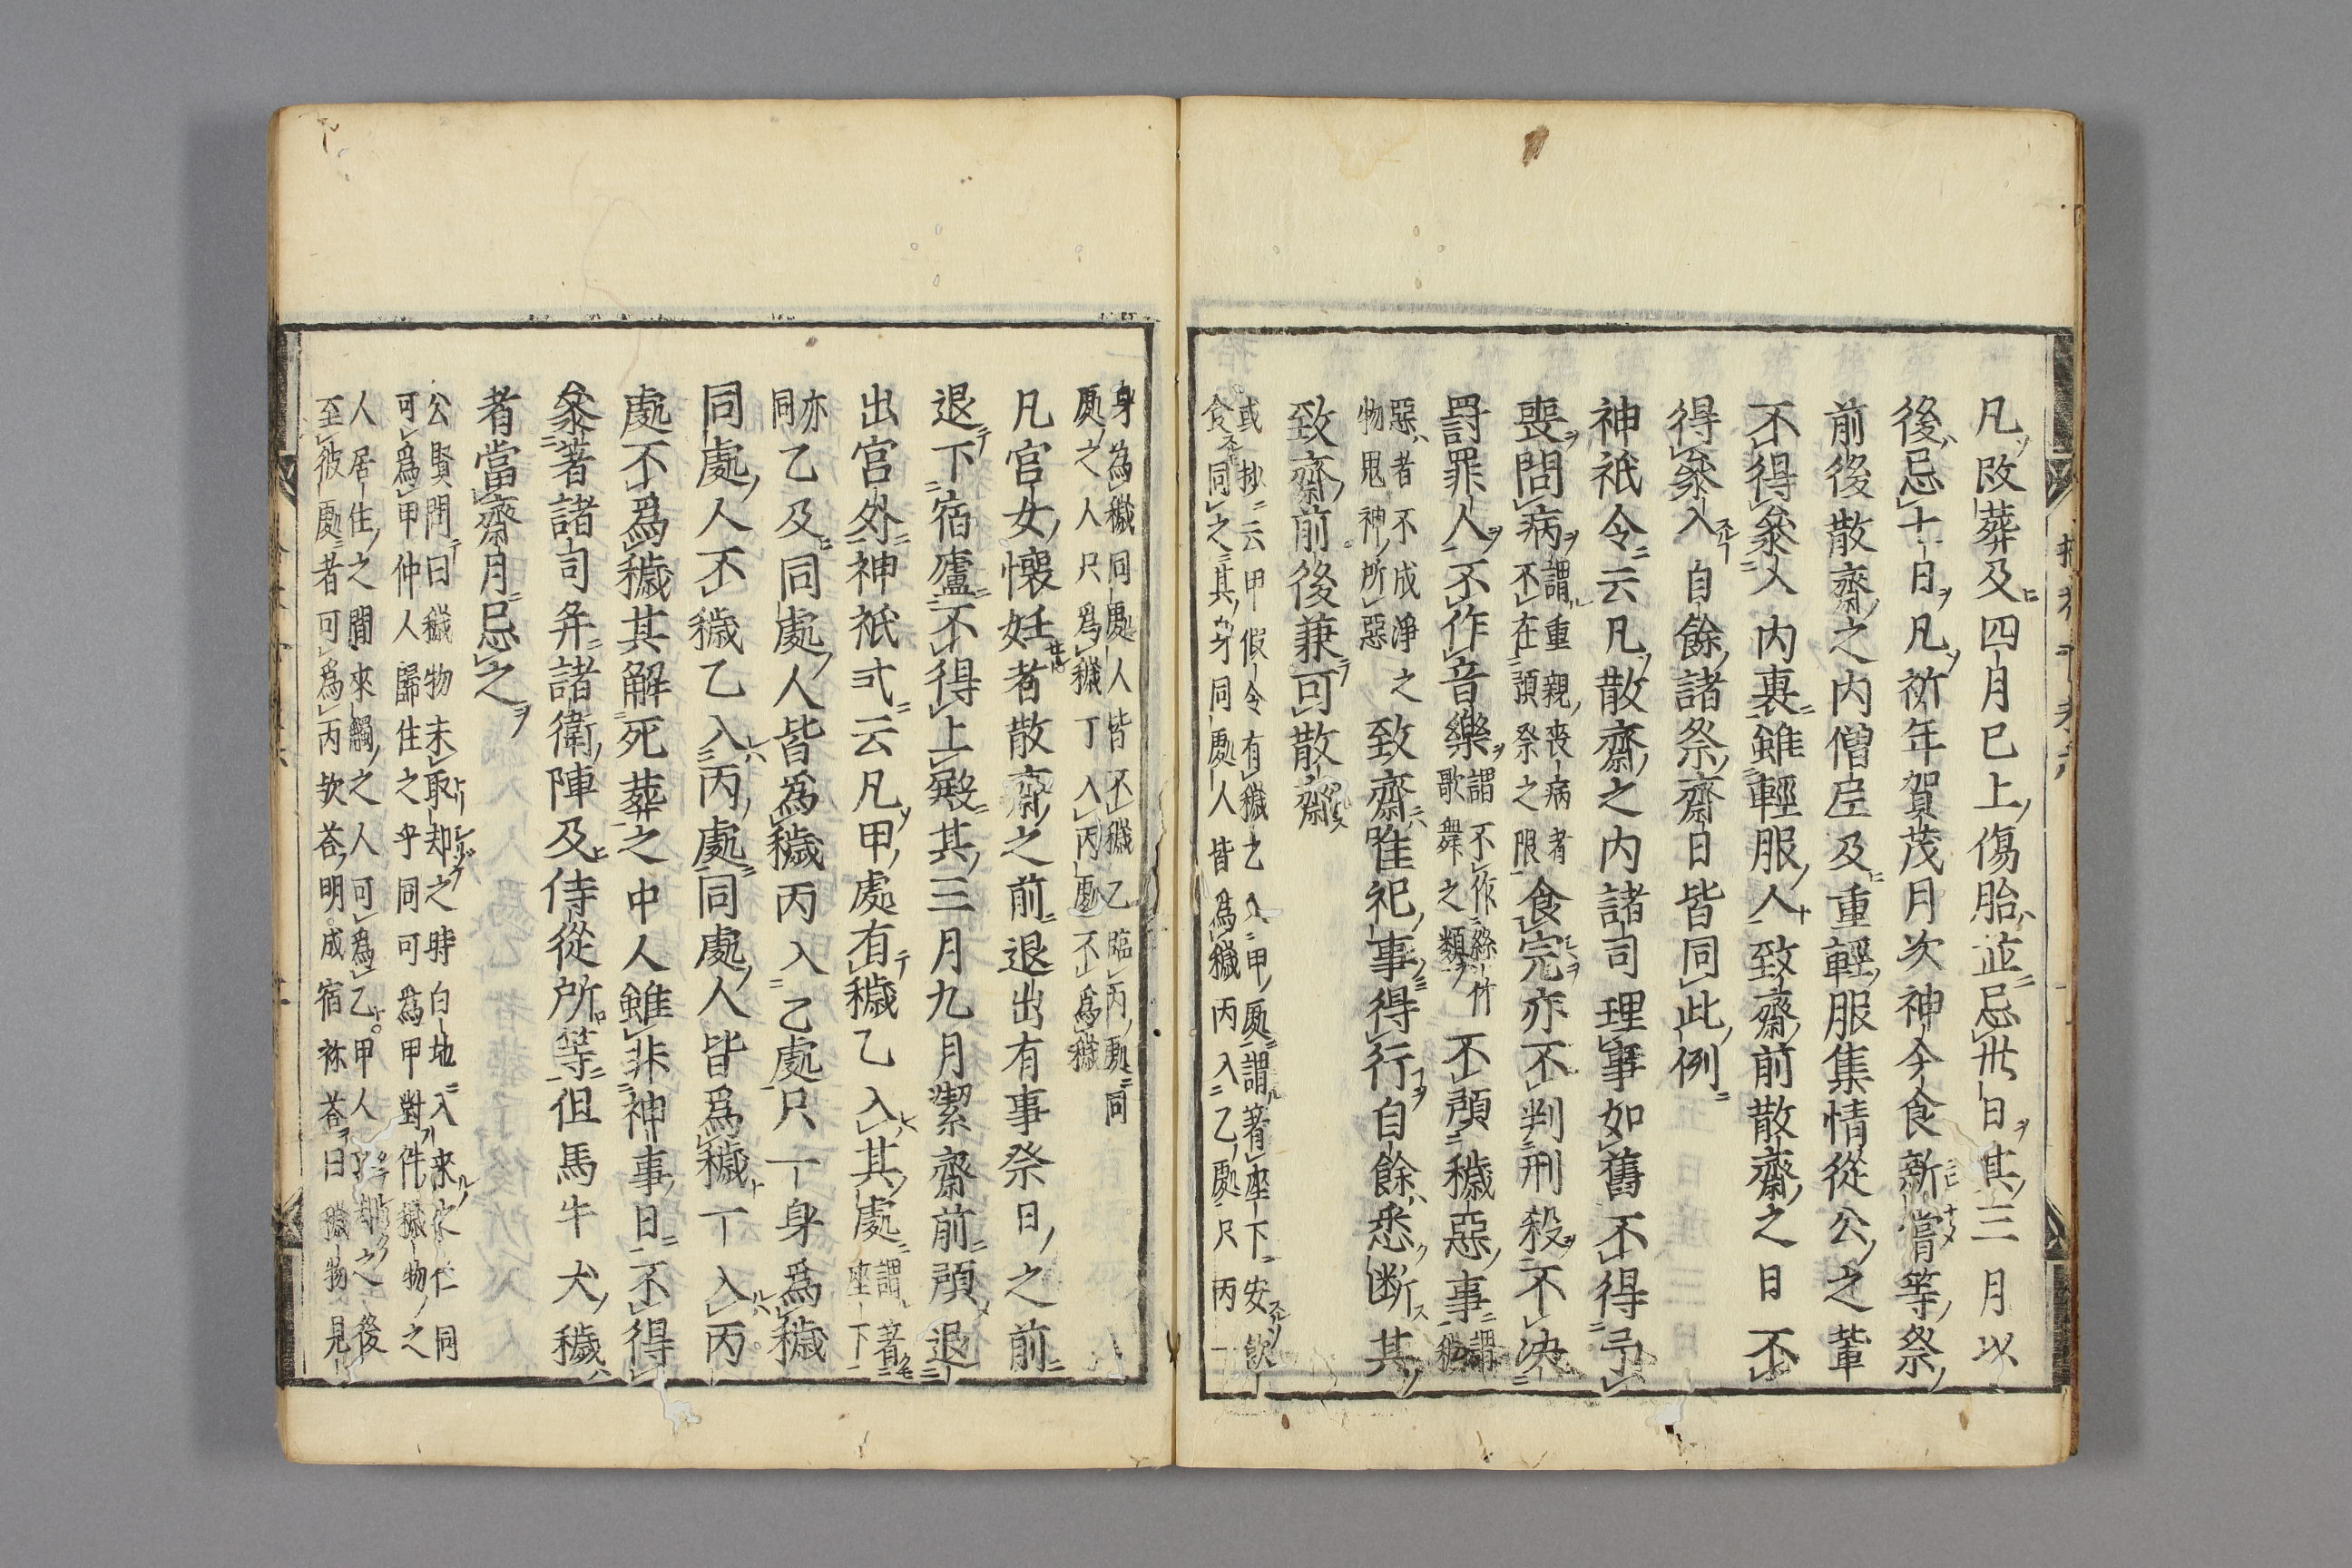 凡改葬及四月已上傷胎並忌卅日其三月以
後忌十日凡祈年賀茂月次神今食新嘗等祭
前後散齋之内僧尼及重輕服集情從公之輩
不得叅入内裏雖輕服人致齋前散齋之日不
得叅入自餘諸祭齋日皆同此例
神祇令云凡散齋之内諸司理事如舊不得弔
喪問病謂重親喪病者
不在預祭之限食完亦不判刑殺不决
罸罪人不作音樂謂不作絲竹
歌舞之類不預穢惡事謂穢
惡者不成淨之
物鬼神所惡致齋唯祀事得行自餘悉断其
致齋前後兼可散齋
或抄云甲假令有穢乙入甲處謂著座下安飲
食同之其身同處人皆爲穢丙入乙處尺丙一
身為穢同處人皆不穢乙臨丙處同
處之人尺爲穢丁入丙處不為穢
凡官女懷妊者散齋之前退出有事祭日之前
退下宿廬不得上殿其三月九月潔齋前預退
出宮外神祇式云凡甲處有穢乙入其處謂著
座下
亦
同乙及同處人皆爲穢丙入乙處只一身爲穢
同處人不穢乙入丙處同處人皆爲穢丁入丙
處不爲穢其解死葬之中人雖非神事日不得
叅著諸司并諸衛陣及侍從所等但馬牛犬穢
者當齋月忌之
公賢問曰穢物未取却之時白地入来仁同
可爲甲仲人歸住之乎同可為甲對件穢物之
人居住之間來觸之人可爲乙甲人却之後
至彼處者可爲丙欤荅明成宿袮荅曰穢物見